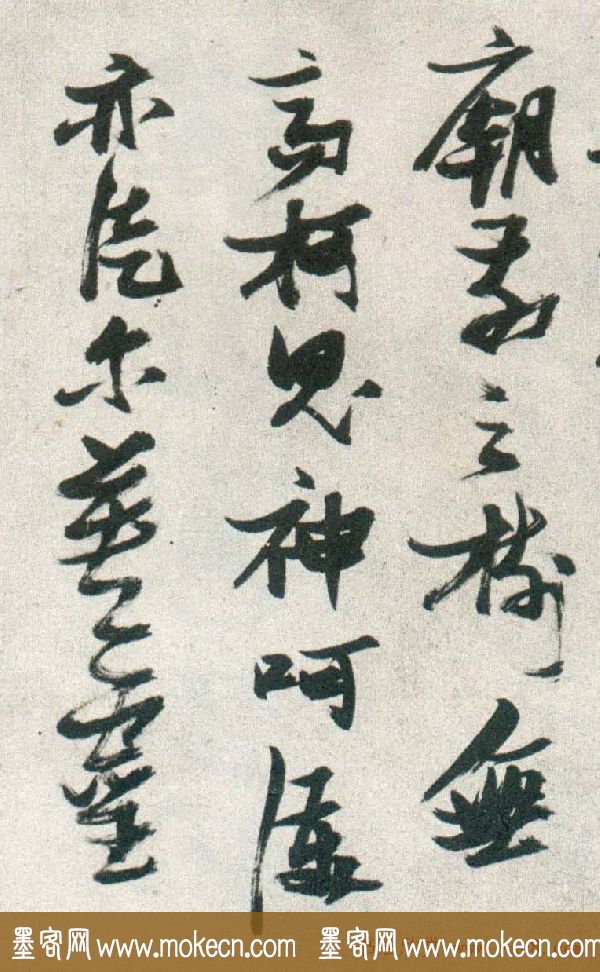 廟前之樹無
高柯鬼神呵護
亦徒尔靈
墨客网 www.mokecn.com 墨客网 www.mokecn.com